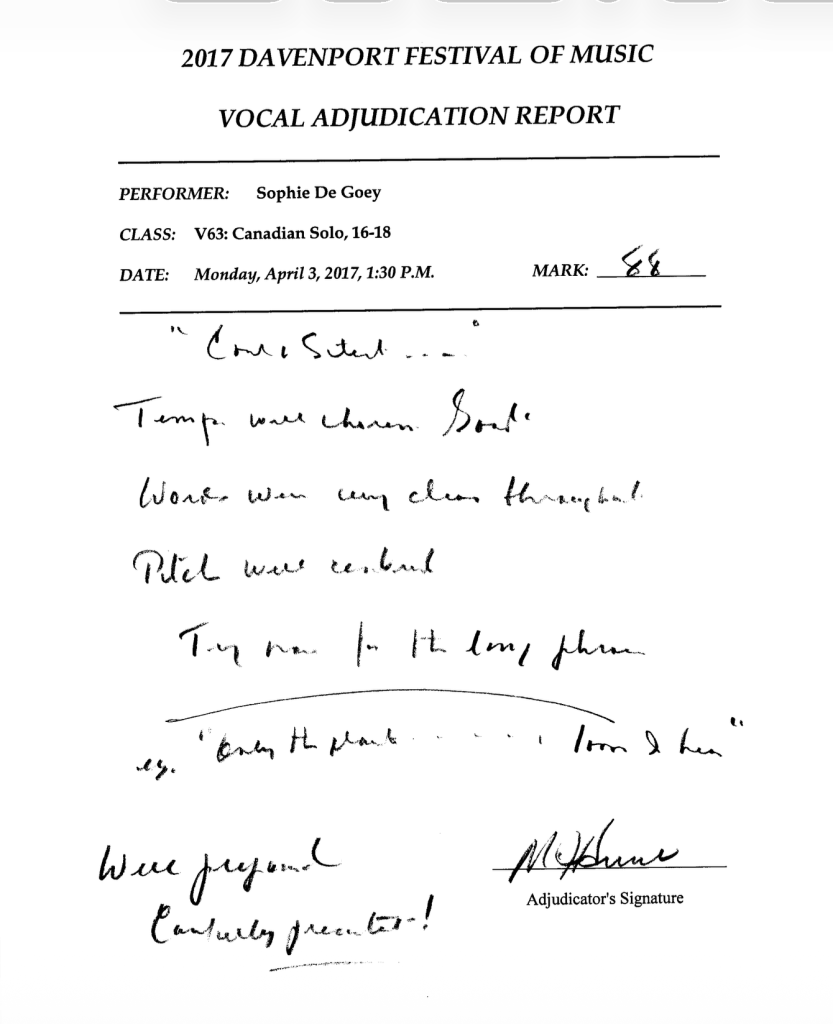 2017 DAVENPORT FESTIVAL OF MUSIC
VOCAL ADJUDICATION REPORT
PERFORMER: Sophie De Goey
CLASS: V63: Canadian Solo, 16-18
DATE: Monday, April 3, 2017, 1:30 P.M. MARK: 88
"
Tempo well chosen. Good.
Words were very clear throughout.
Pitch well centred
Try now for the long phrase
eg. "Only the plaint . . . . . . loon I hear"
Well prepared
Carefully presented!
Adjudicator's Signature